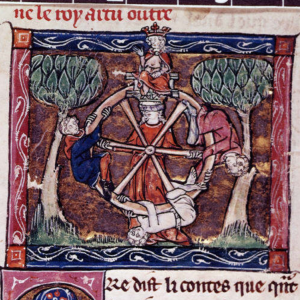 ne le roy artu outre
Re dist li contes que